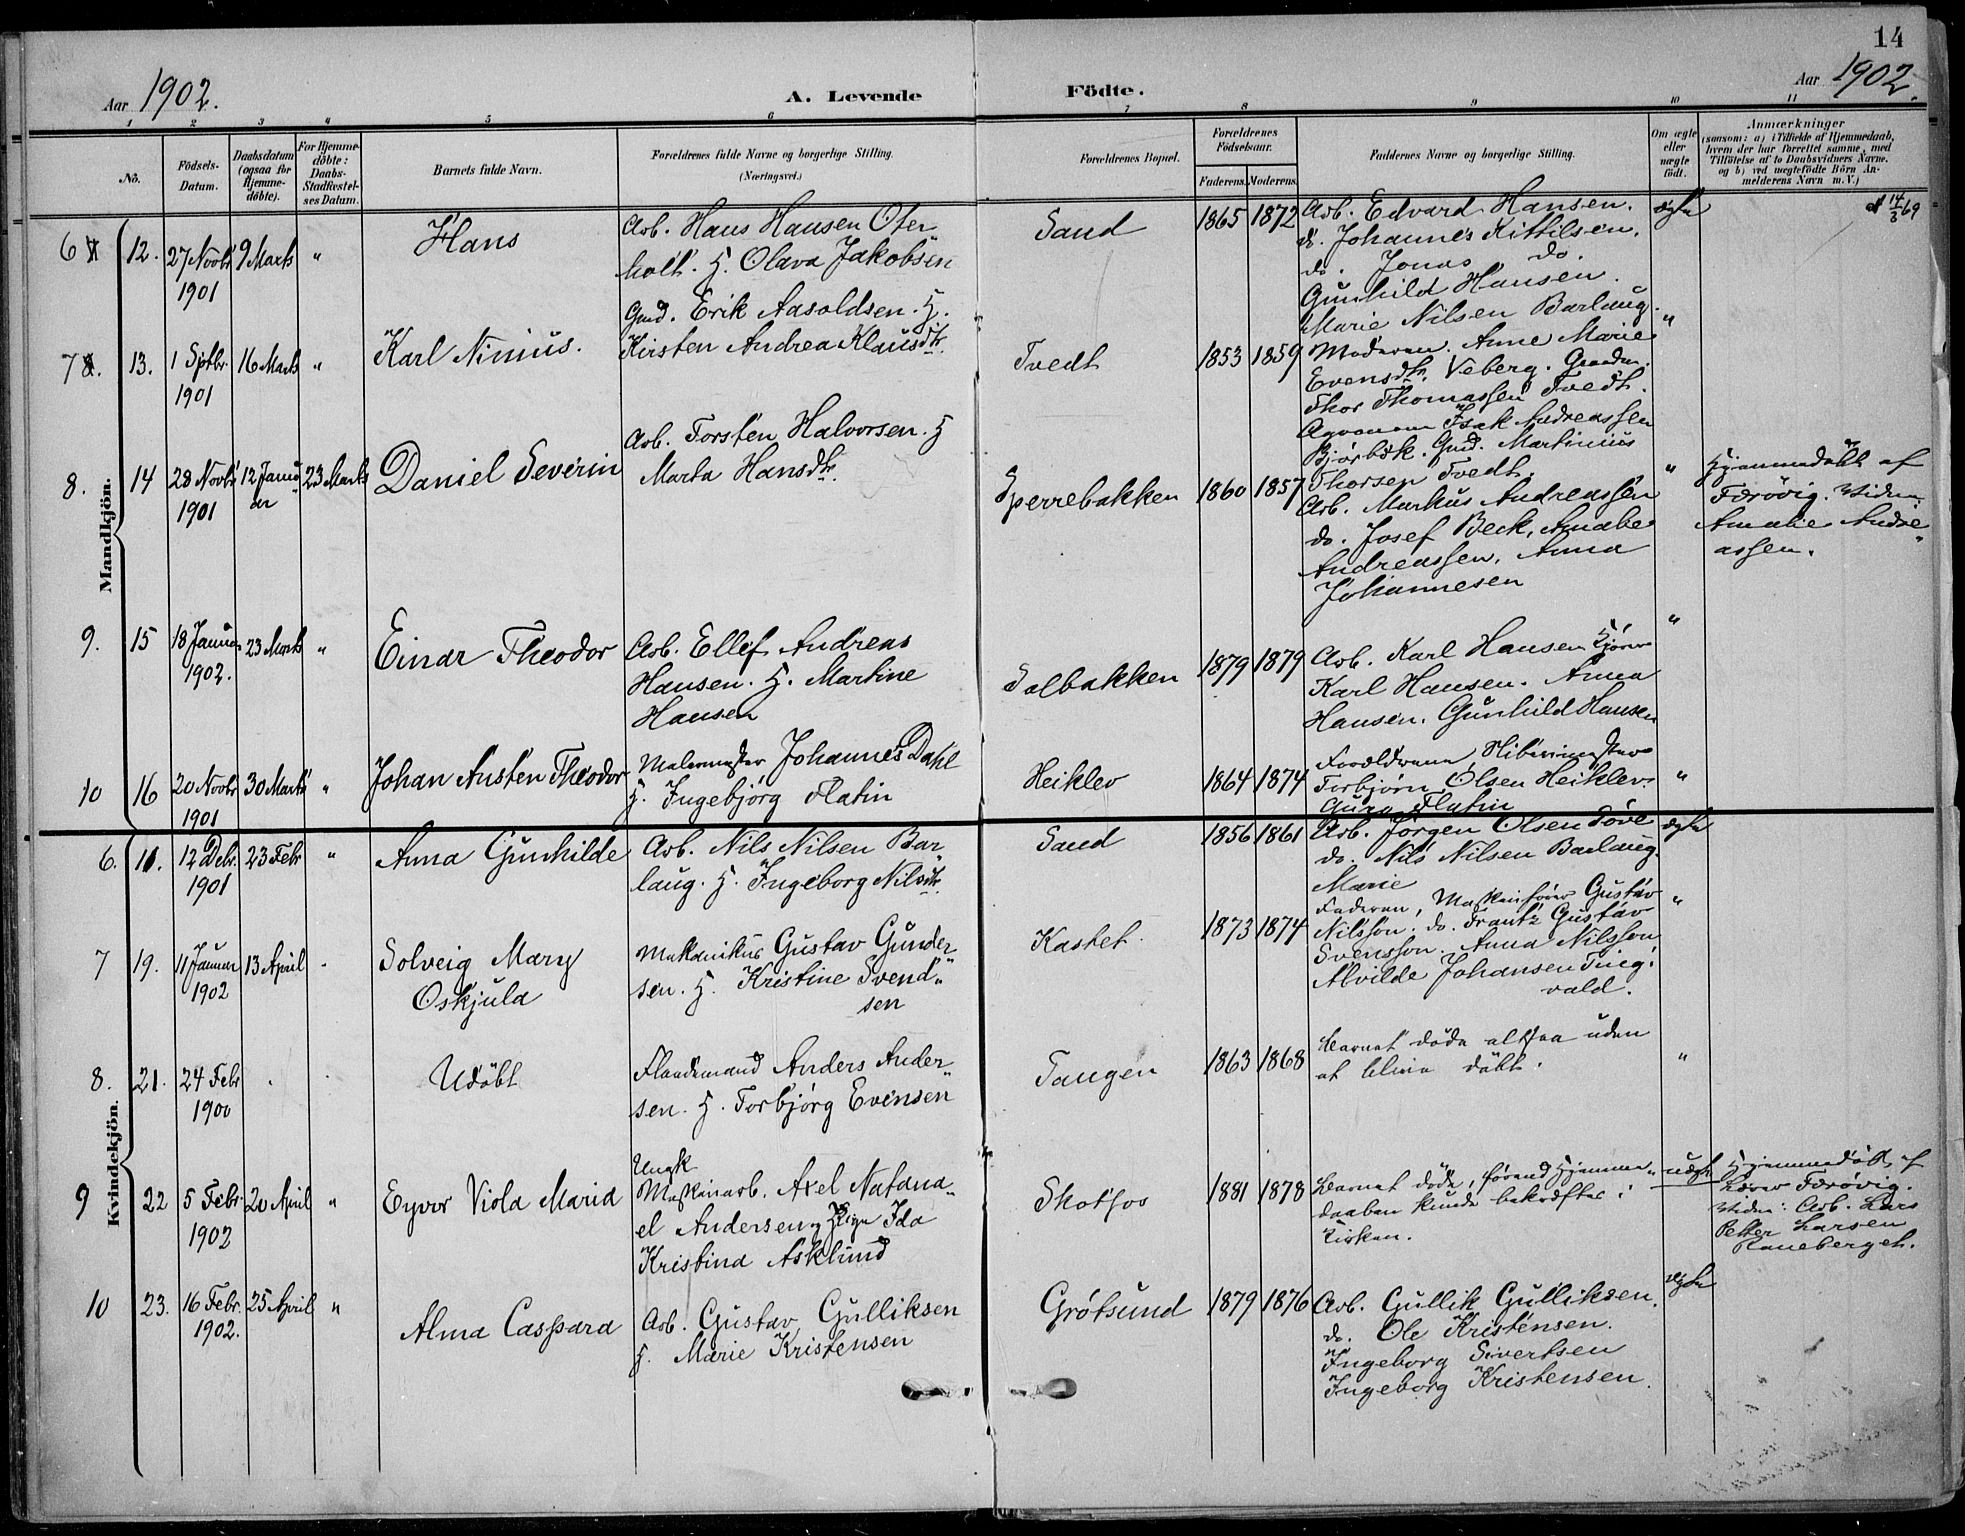 14
Aar 1902.
A. Levende Födte.
Aar 1902.
1 2 3 4 5 6 7 8 9 10 11
No.
Födsels-Datum.
Daabsdatum (ogsaa for Hjemme-döbte).
For Hjemme-döbte: Daabs-Stadfæstel-ses Datum.
Barnets fulde Navn.
Forældrenes fulde Navne og borgerlige Stilling.
(Næringsvei.)
Forældrenes Bopæl.
Forældrenes Födselsaar.
Faderens. Moderens.
Faddernes Navne og borgerlige Stilling.
Om ægte eller uægte födt.
Anmærkninger
(saasom: a) i Tilfælde af Hjemmedaab, hvem der har forrettet samme, med Tilföielse af to Daabsvidners Navne, og b) ved uægtefödte Börn An-melderens Navn m. V.)
Mandkjön.
6 12. 27 Novbr 1901 9 Marts " Hans
Arb. Hans Hansen Oter
holt. H. Olava Jakobsen
Sand 1865 1872
Arb. Edvard Hansen.
do. Johannes Kittilsen.
do. Jonas do.
Gunhild Hansen.
Marie Nilsen Barlaug.
ægte
14/3 69
7 13. 1 Sptbr. 1901 16 Marts " Karl Ninius.
Gmd. Erik Aasoldsen. H.
Kirsten Andrea Klausdtr.
Tvedt 1853 1859
Moderen. Anne Marie
Evensdtr. Veberg. Gaardm.
Thor Thomassen Tvedt.
Agronom Isak Andreassen
Bjørbæk. Gmd. Martinius
Thorsen Tvedt.
"
8. 14 28 Novbr 1901 12 Janu ar 23 Marts Daniel Severin
Arb. Torsten Halvorsen. H
Marta Hansdtr.
Sperrebakken 1860 1857
Arb. Markus Andreassen
do. Josef Beck, Amalie
Andreassen, Anna
Johannesen
"
Hjemmedöbt af
Færövig. Vidn.
Amalie Andre
assen.
9. 15 18 Januar 1902. 23 Marts " Einar Theodor
Arb. Ellef Andreas
Hansen. H. Martine
Hansen
Solbakken 1879 1879
Arb. Karl Hansen, Kjører
Karl Hansen. Anna
Hansen. Gunhild Hansen
"
10 16 20 Novbr 1901 30 Marts " Johan Austen Theodor
Malermester Johannes Dahl
H. Ingebjørg Flatin
Heiklev 1864 1874
Forældrene,
Torbjørn Olsen Heiklev.
Guro Flatin
"
Kvindekjön.
6. 11. 12 Debr. 1901 23 Febr " Anna Gunhilde
Arb. Nils Nilsen Bar
laug. H. Ingeborg Nilsdtr.
Sand 1856 1861
Arb. Jørgen Olsen Tove
do. Nils Nilsen Barlaug.
Marie
ægte
7 19. 11 Januar 1902 13 April Solveig Mary
Oskjula
Mekanikus Gustav Gunder
sen. H. Kristine Svend
sen
Kastet 1873 1874
Faderen, Maskinfører Gustav
Nilsson. do. Frantz Gustav
Svensson. Anna Nilsson
Alvilde Johansen Tveg
vald.
"
8. 21. 24 Febr 1900 Udöbt
Flaademand Anders Ander
sen. H. Torbjørg Evensen
Tangen 1863 1868
Barnet døde altsaa uden
at blive döbt.
"
9 22 5 Febr. 1902 20 April " Eyvor Viola Maria
Ungk
Maskinarb. Axel Natana
el Andersen og Pige Ida
Kristina Asklund
Skotfos 1881 1878
Barnet døde, førend Hjemme
daaben kunde bekræftes i
Kirken.
uægte
Hjemmedöbt af
Lærer Færövig.
Vidn: Arb. Lars
Petter Larsen
Raneberget.
10 23. 16 Febr. 1902. 25 April " Alma Caspara
Arb. Gustav Gulliksen
H. Marie Kristensen
Grötsund 1879 1876
Arb. Gullik Gulliksen.
do. Ole Kristensen.
Ingeborg Sivertsen
Ingeborg Kristensen.
ægte